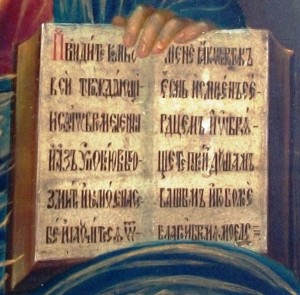 Прїидите ко мнѣ
вси трꙋждающїи
и ѡбремененнїи
и азъ ꙋпокою вы во
змите иго мое на се
бе и наꙋчитеся ѿ
мене ꙗко кроткъ
есмь и смиренъ се
рдцемъ и ѡбря
щете покой дꙋшамъ
вашымъ иго бо мое
благо и бремя мое ле